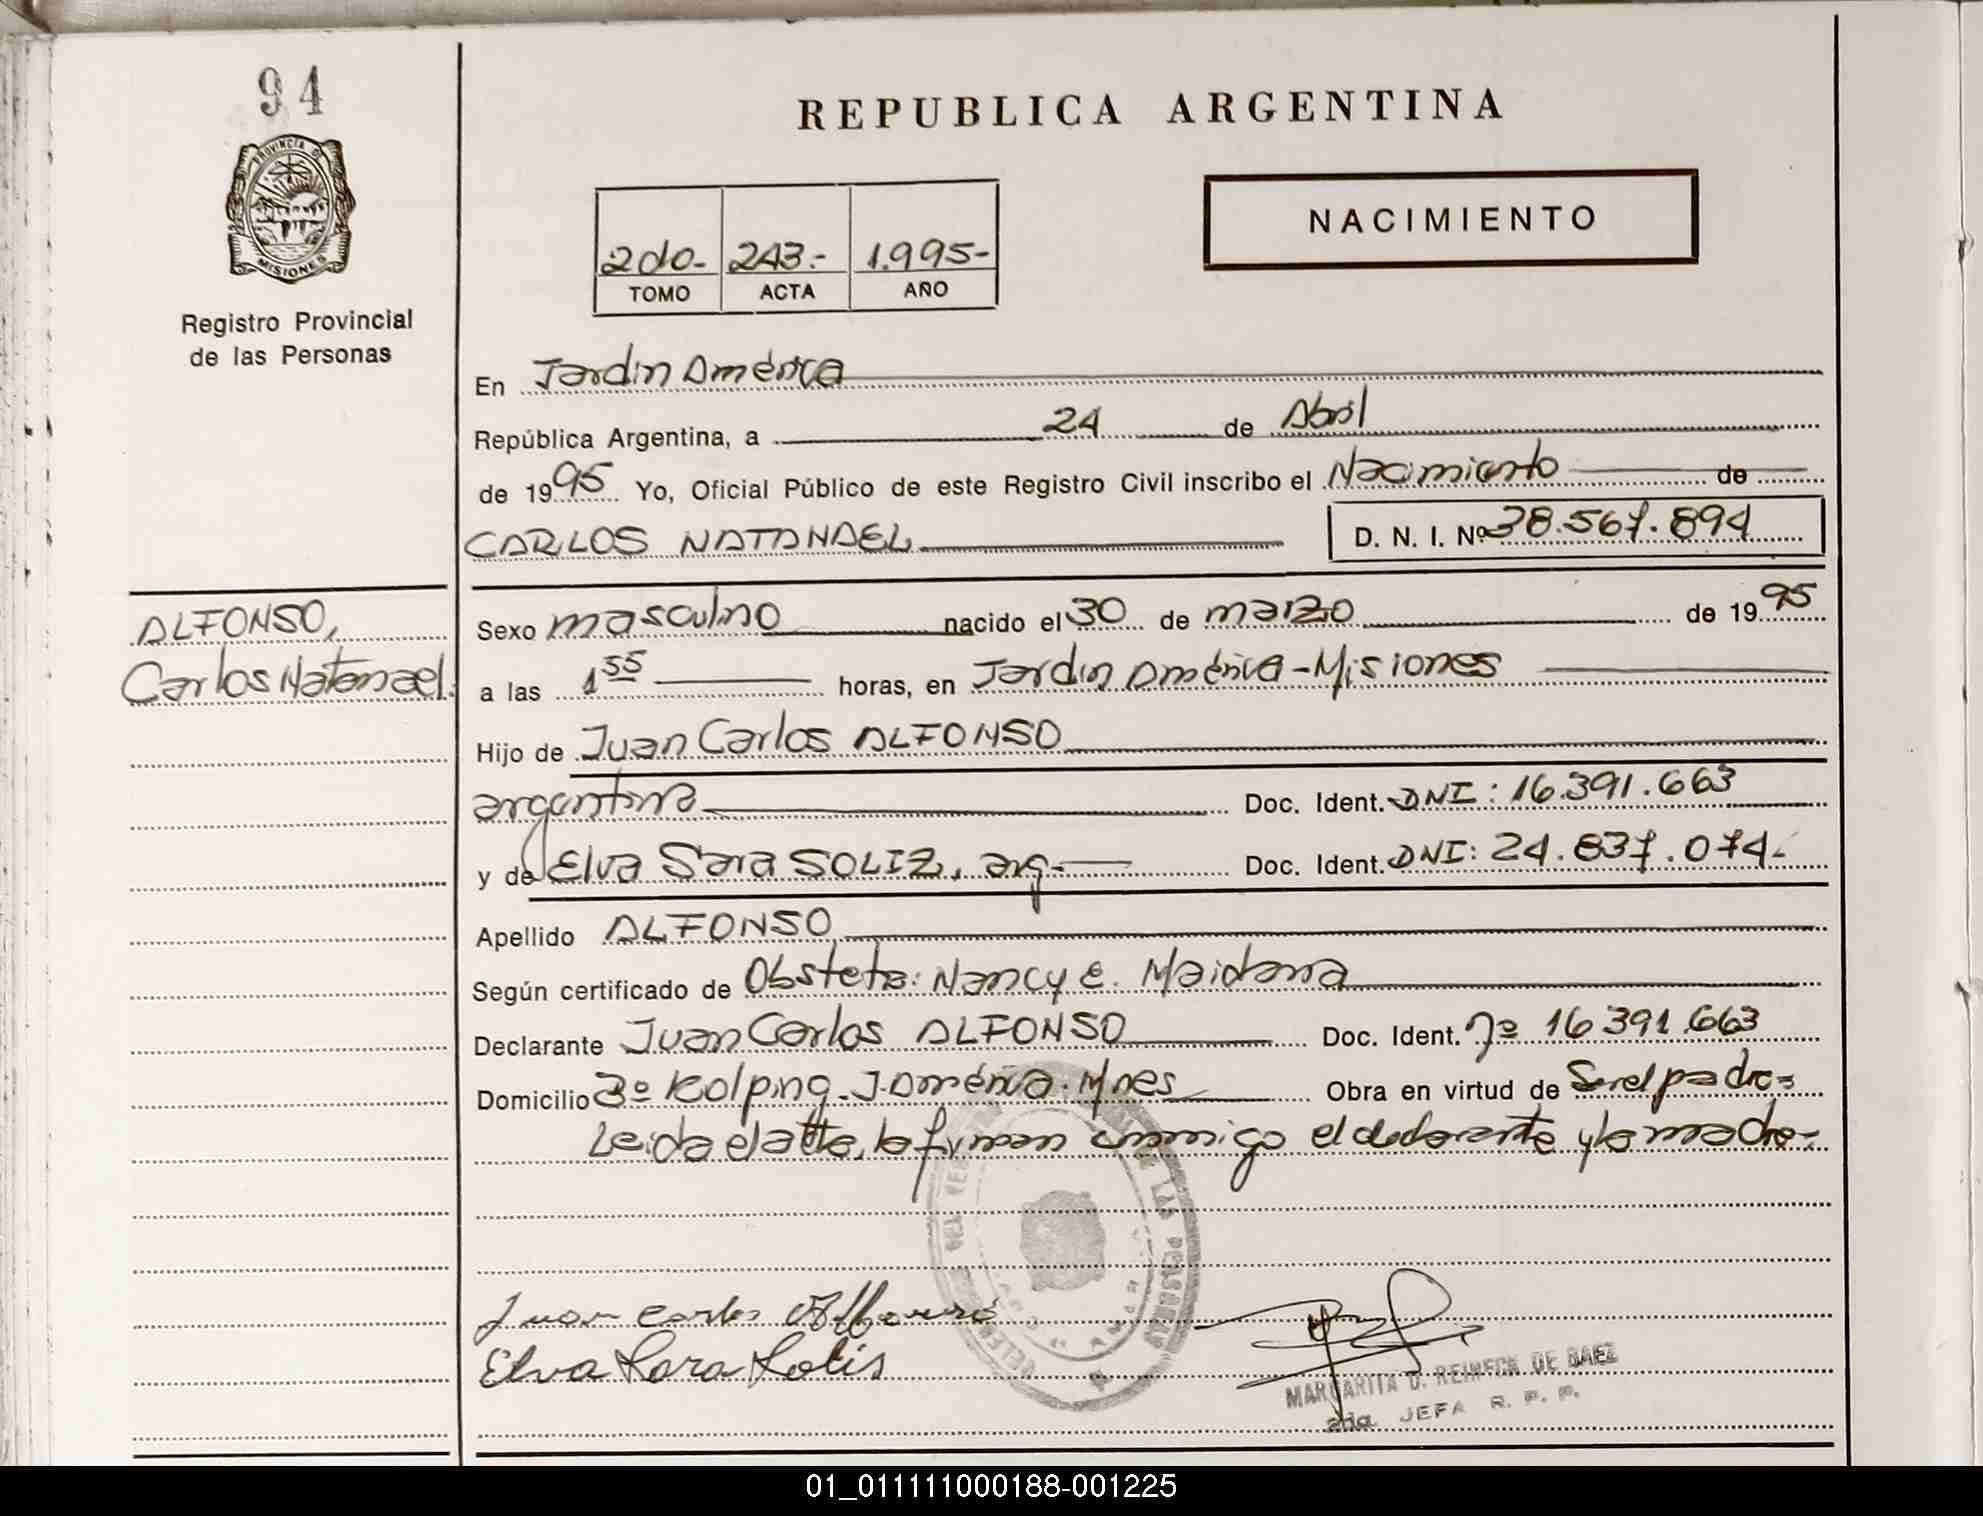 94
PROVINCIA D
MISIONES
Registro Provincial
de las Personas
REPUBLICA ARGENTINA
NACIMIENTO
2do.- 243.- 1.995-
TOMO ACTA AÑO
En Jardin América
República Argentina, a 24 de Abril
de 1995 Yo, Oficial Público de este Registro Civil inscribo el Nacimiento de
CARLOS NATANAEL D. N. I. Nº 38.567.894
ALFONSO,
Carlos Natanael.
Sexo masculino nacido el 30 de marzo de 1995
a las 1 55 horas, en Jardin América - Misiones
Hijo de Juan Carlos ALFONSO
argentina Doc. Ident. DNI: 16.391.663
y de Elva Sara SOLIZ, arg.- Doc. Ident. DNI: 24.837.074-
Apellido ALFONSO
Según certificado de Obsteta: Nancy E. Maidana
Declarante Juan Carlos ALFONSO Doc. Ident. nº 16.391.663
Domicilio Bº Kolping. J. América. Mnes Obra en virtud de Ser el padre-
Leida el acta, la firman conmigo el declarante y la madre-
Juan Carlos Alfonso
Elva Sara Solis
MARGARITA D. REINECK DE BAEZ
2da. JEFA R. P. P.
01_011111000188-001225